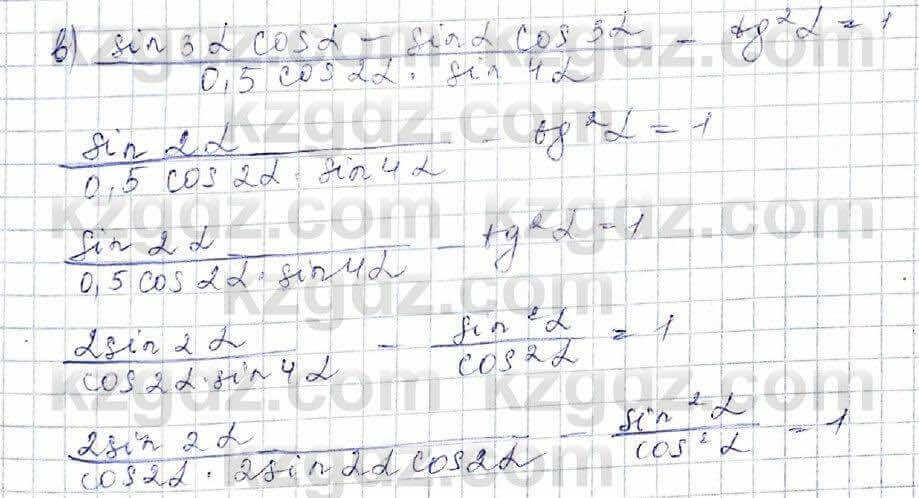 в) (sin 3α cos α - sin α cos 3α) / (0,5 cos 2α · sin 4α) - tg²α = 1
sin 2α / (0,5 cos 2α · sin 4α) - tg²α = 1
sin 2α / (0,5 cos 2α · sin 4α) - tg²α = 1
2 sin 2α / (cos 2α · sin 4α) - sin²α / cos 2α = 1
2 sin 2α / (cos 2α · 2 sin 2α cos 2α) - sin²α / cos²α = 1
kzgdz.com kzgdz.com
kzgdz.com
kzgdz.com kzgdz.com
kzgdz.com
kzgdz.com kzgdz.com
kzgdz.com